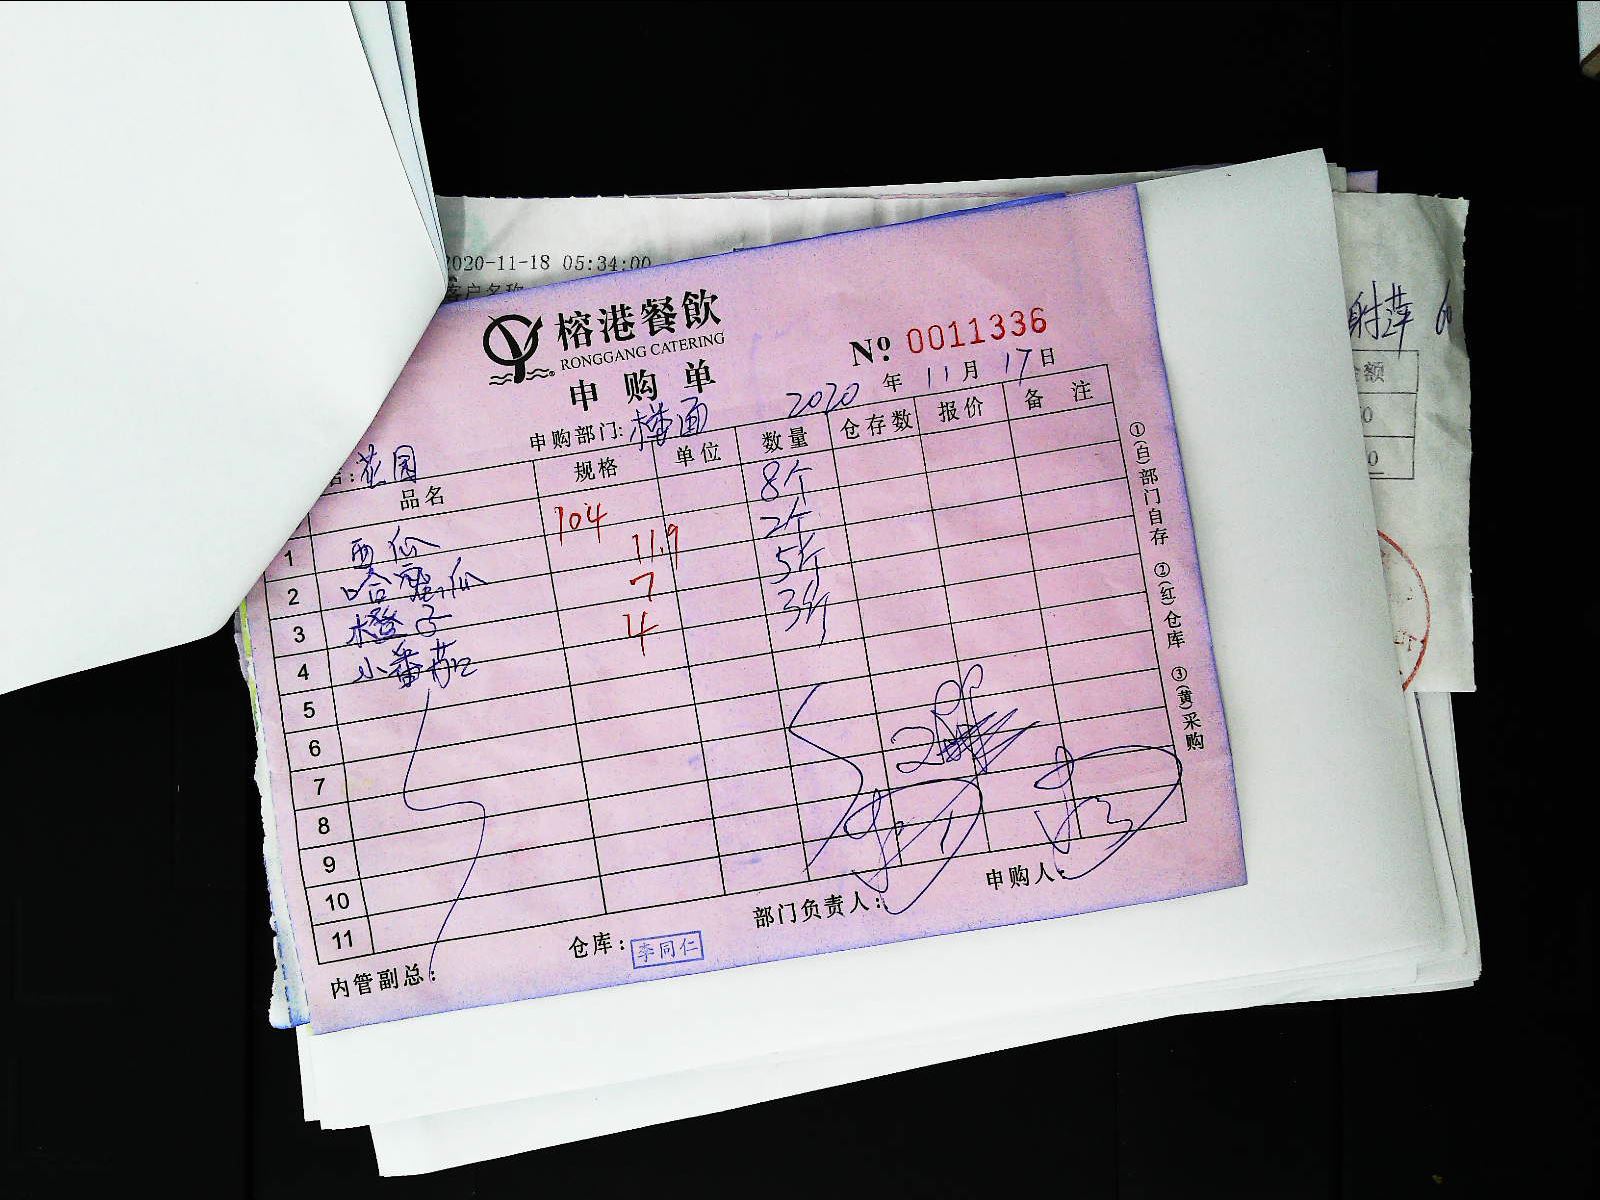 2020-11-18 05:34:00
客户名称
榕港餐飲
RONGGANG CATERING
申购单
№ 0011336
2020 年 11 月 17 日
申购部门: 楼面
名: 花园
品名 规格 单位 数量 仓存数 报价 备注
1 西瓜 104 8个
2 哈密瓜 11.9 2个
3 橙子 7 5个
4 小番茄 4 3斤
5
6
7
8
9
10
11
内管副总:
仓库: 李同仁
部门负责人:
申购人:
①(白)部门自存 ②(红)仓库 ③(黄)采购
金额